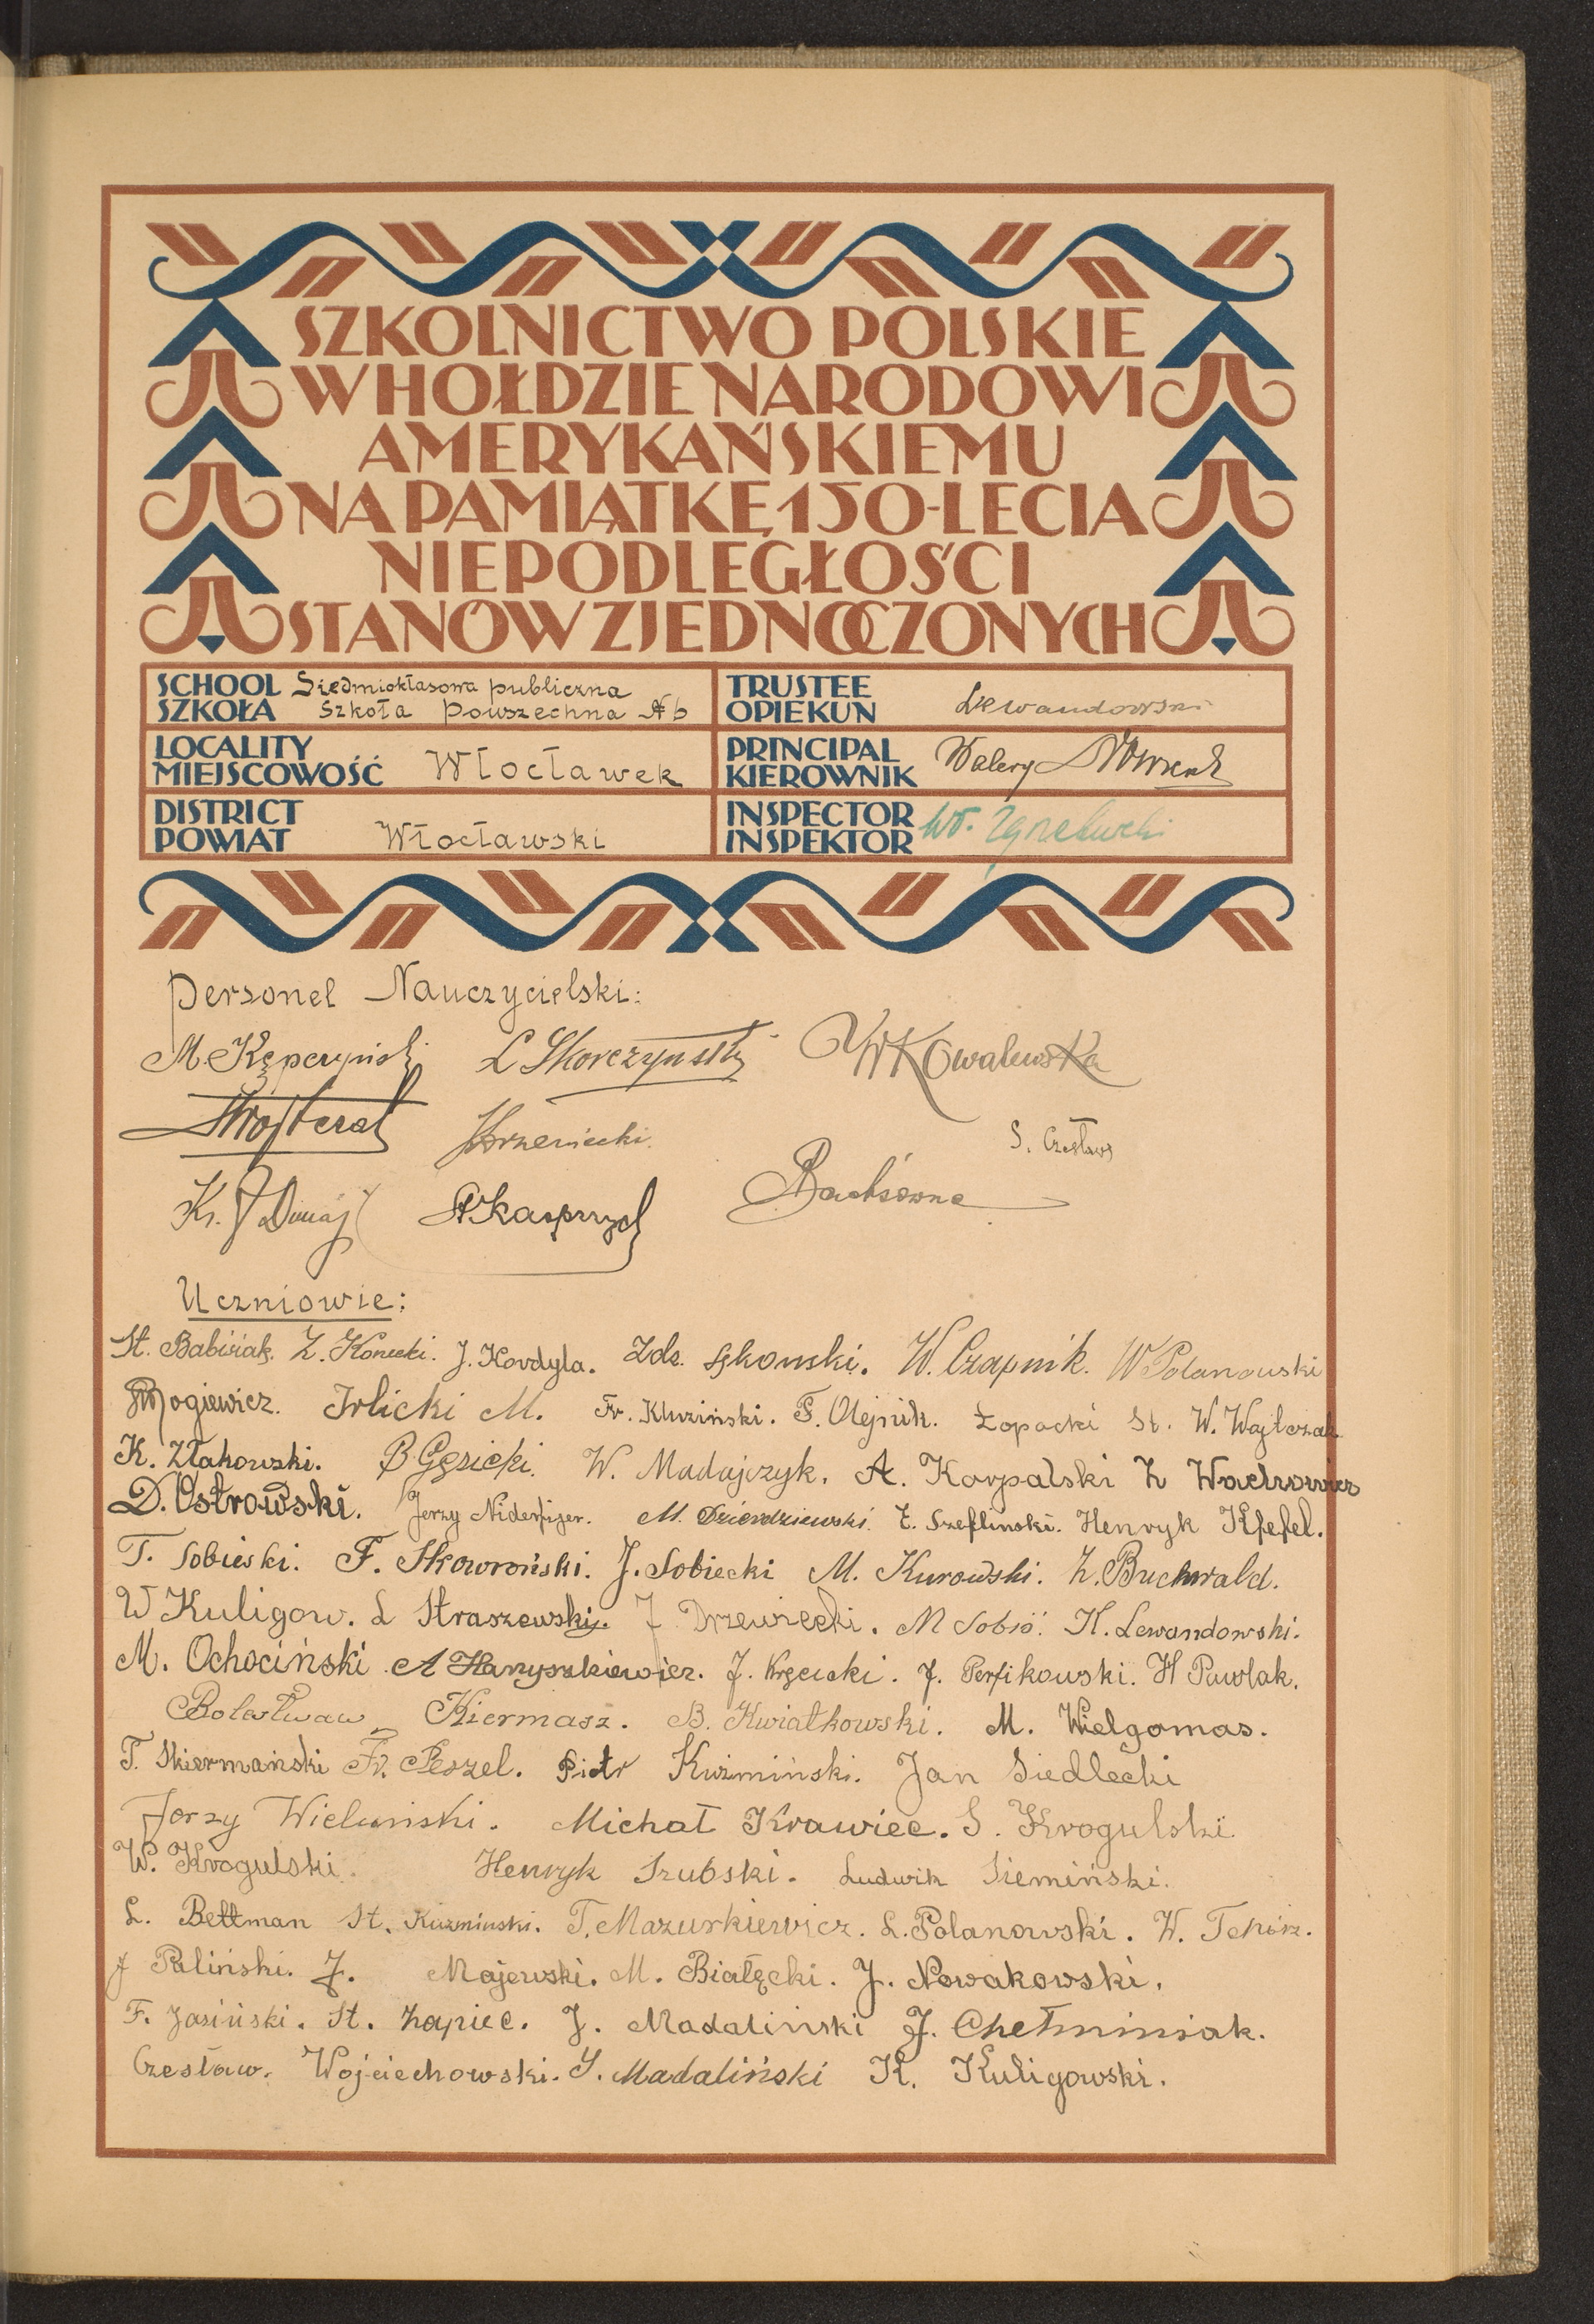 SZKOLNICTWO POLSKIE
W HOŁDZIE NARODOWI
AMERYKAŃSKIEMU
NA PAMIĄTKĘ 150-LECIA
NIEPODLEGŁOŚCI
STANÓW ZJEDNOCZONYCH
SCHOOL Siedmioklasowa publiczna
SZKOŁA Szkoła Powszechna № 6
TRUSTEE
OPIEKUN Lewandowski
LOCALITY
MIEJSCOWOŚĆ Włocławek
PRINCIPAL
KIEROWNIK Walery
DISTRICT
POWIAT Włocławski
INSPECTOR
INSPEKTOR Wł.
Personel Nauczycielski:
M. Kępczyński L Skorczyński W Kowalewska
S. Czesław
Ks. J Dunaj St Kasprzyk
Uczniowie:
St. Babiriak. Z. Konecki. J. Kordyla. Zdz. W. Czapnik. W Polanowski
Rogiewicz. Irlicki M. Fr. Kluziński. F. Olejnik. Łopacki St. W. Wajtczak
K. Złakowski. B Gęsicki. W. Madajczyk. A. Karpalski Z Wachowicz
D. Ostrowski. Jerzy M. Dzierdziewski. Z. Szeflinski. Henryk
T. Sobieski. F. Skowroński. J. Sobiecki M. Kurowski. Z. Buchwald.
W Kuligow. L Straszewski. J Drzewiecki. M K. Lewandowski.
M. Ochociński A Hanyszkiewicz. J. Kręcicki. J. Perfikowski. H Pawlak.
Bolesław Kiermasz. B. Kwiatkowski. M. Wielgomas.
T. Skiermański Fr. Peszel. Piotr Kuźmiński. Jan Siedlecki
Jerzy Wieluński. Michał Krawiec. S. Krogulski
W. Krogulski. Henryk Szubski. Ludwik Siemiński.
L. Bettman St. Kuźminski. T. Mazurkiewicz. L. Polanowski. W.
J Paliński. J. Majewski. M. Białęcki. J. Nowakowski.
F. Jasiński. St. Łapiec. J. Madaliński J. Chełminiak.
Czesław. Wojciechowski. S. Madaliński K. Kuligowski.